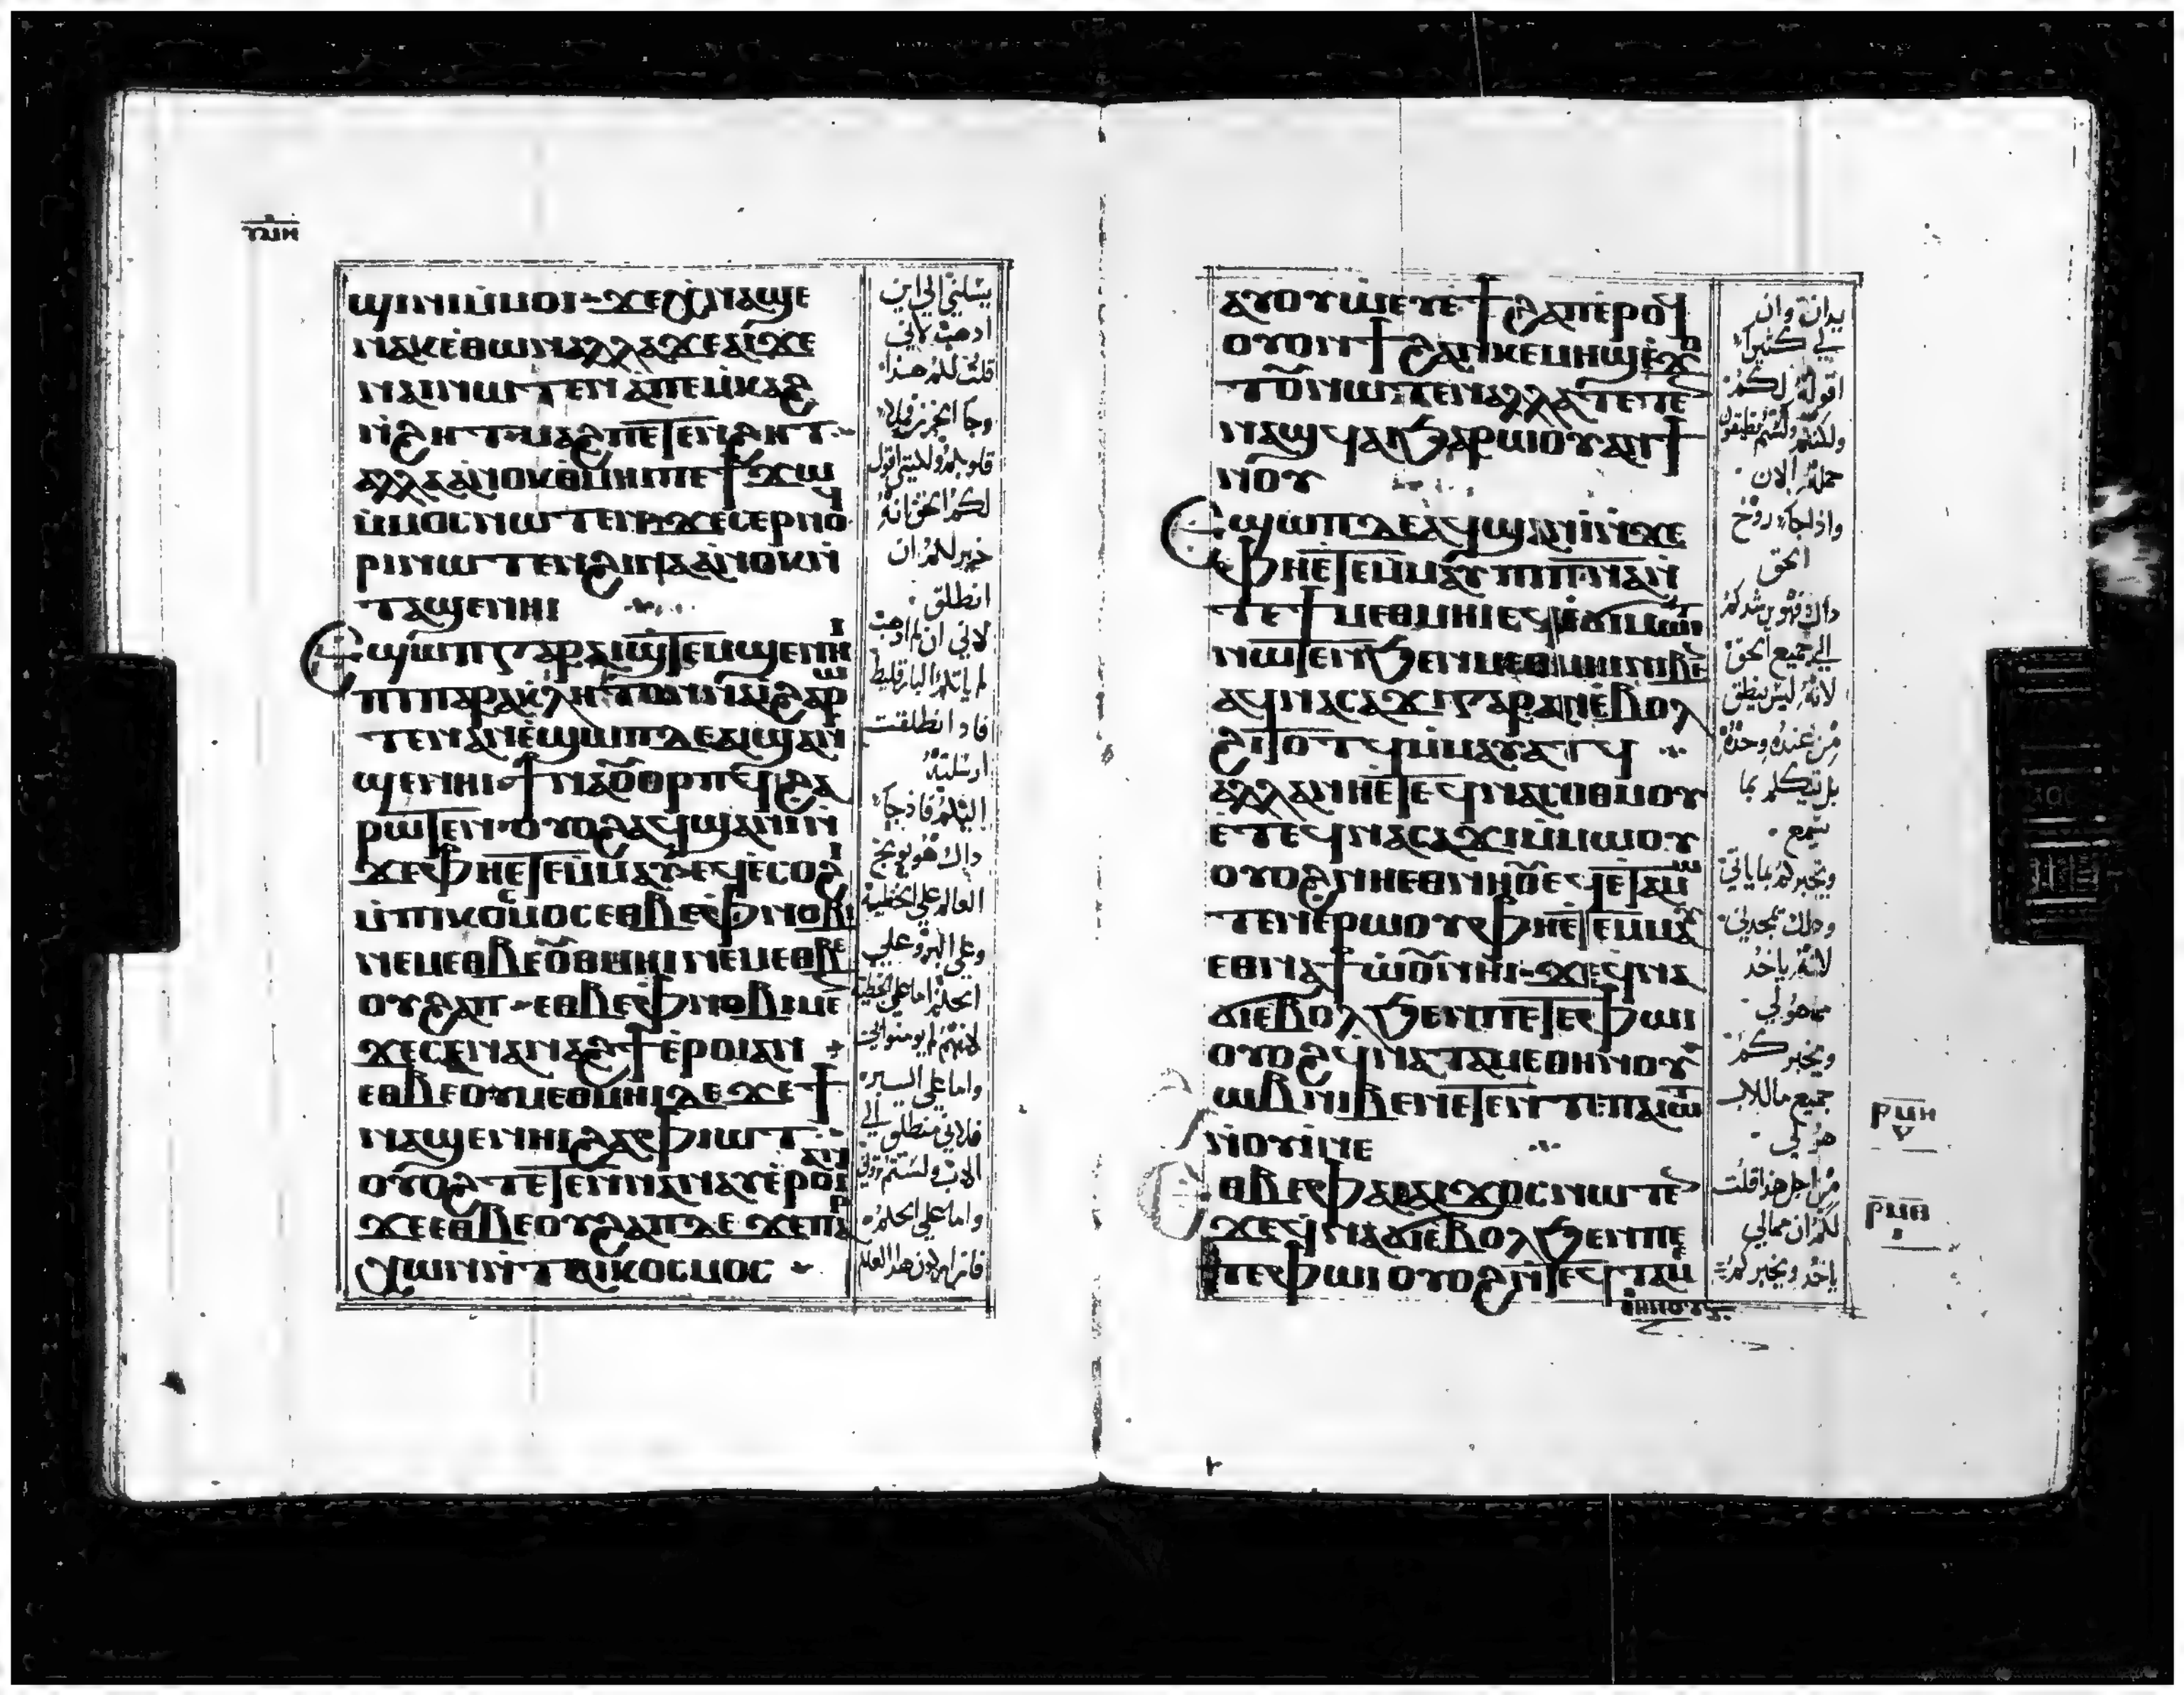 ϣⲓⲛⲓ ⲙ̀ⲙⲟⲓ ϫⲉ ⲭ̀ⲛⲁϣⲉ
ⲛⲁⲕ ⲉ̀ⲑⲱⲛ ⲁⲗⲗⲁ ϫⲉ ⲁⲓϫⲉ
ⲛⲁⲓ ⲛⲱⲧⲉⲛ ⲁ̀ ⲡⲉⲙ̀ⲕⲁϩ
ⲛ̀ϩⲏⲧ ⲙⲁϩ ⲡⲉⲧⲉⲛϩⲏⲧ
ⲁⲗⲗⲁ ⲁⲛⲟⲕ ⲑⲙⲏⲓ ⲡⲉϯϫⲱ
ⲙ̀ⲙⲟⲥ ⲛⲱⲧⲉⲛ ϫⲉ ⲥⲉⲣⲛⲟϥ
ⲣⲓ ⲛⲱⲧⲉⲛ ϩⲓⲛⲁ ⲁ̀ⲛⲟⲕ ⲛ̀
ⲧⲁϣⲉⲛⲏⲓ
Ⲉϣⲱⲡ ⲅⲁⲣ ⲁⲓϣ̀ⲧⲉⲙϣⲉⲛⲏⲓ
ⲡⲓⲡⲁⲣⲁⲕⲗⲏⲧⲟⲛ ⲛⲁⲓ̀ ϩⲁⲣⲱ
ⲧⲉⲛ ⲁⲛ ⲉ̀ϣⲱⲡ ⲇⲉ ⲁⲓϣⲁⲛ
ϣⲉⲛⲏⲓ ϯⲛⲁⲟⲩⲟⲣⲡϥ ϩⲁ
ⲣⲱⲧⲉⲛ ⲟⲩⲟϩ ⲁϥϣⲁⲛⲓ̀ ⲛ̀
ϫⲉ ⲫⲏ ⲉ̀ⲧⲉⲙ̀ⲙⲁⲩ ⲉϥⲉ̀ⲥⲟϩⲓ
ⲙ̀ⲡⲓⲕⲟⲥⲙⲟⲥ ⲉⲑⲃⲉ ⲫⲛⲟⲃⲓ
ⲛⲉⲙ ⲉⲑⲃⲉ ⲟⲩⲙⲉⲑⲙⲏⲓ ⲛⲉⲙ ⲉⲑⲃⲉ
ⲟⲩϩⲁⲡ ⲉⲑⲃⲉ ⲫⲛⲟⲃⲓ ⲙⲉ
ϫⲉ ⲥⲉⲛⲁⲛⲁϩϯ ⲉ̀ⲣⲟⲓ ⲁⲛ
ⲉⲑⲃⲉ ⲟⲩⲙⲉⲑⲙⲏⲓ ⲇⲉ ϫⲉ ϯ
ⲛⲁϣⲉⲛⲏⲓ ϩⲁ ⲫⲓⲱⲧ
ⲟⲩⲟϩ ⲧⲉⲧⲉⲛⲛⲁⲛⲁⲩ ⲉ̀ⲣⲟⲓ ⲁⲛ
ϫⲉ ⲉⲑⲃⲉ ⲟⲩϩⲁⲡ ⲇⲉ ϫⲉ ⲡⲁⲣ
ⲭⲱⲛ ⲛ̀ⲧⲉ ⲡⲁⲓⲕⲟⲥⲙⲟⲥ
يسلني الي اين
اذهب لاني
قلت لكم هذا
وجا الحزن فملا
قلوبكم ولكنني اقول
لكم الحق انه
خير لكم ان
انطلق
لاني ان لم اذهب
لم ياتكم البارقليط
فاذا انطلقت
ارسلته
اليكم فاذا جا
ذاك فهو يوبخ
العالم علي الخطية
وعلي البر وعلي
الحكم اما علي الخطية
لانهم لم يومنوا بي
واما علي البر
فلاني منطلق الي
الاب ولستم تروني
واما علي الحكم
فان اركون هذا العالم
ⲁⲩⲟⲩⲱ ⲉⲩϯϩⲁⲡ ⲉ̀ⲣⲟϥ
ⲟⲩⲟⲛϯ ϩⲁⲛⲕⲉⲙⲏϣ ⲉ̀ϫⲟ
ⲧⲟⲩ ⲛⲱⲧⲉⲛ ⲁⲗⲗⲁ ⲧⲉⲧⲉ
ⲛⲁϣϥⲁⲓ ϧⲁⲣⲱⲟⲩ ⲁⲛ ϯ
ⲛⲟⲩ
Ⲉϣⲱⲡ ⲇⲉ ⲁϥϣⲁⲛⲓ̀ ⲛ̀ϫⲉ
ⲫⲏ ⲉ̀ⲧⲉⲙ̀ⲙⲁⲩ ⲡⲓⲡⲛⲁ ⲛ̀
ⲧⲉ ϯⲙⲉⲑⲙⲏⲓ ⲉϥⲉ̀ϭⲓⲙⲱⲓⲧ
ⲛⲱⲧⲉⲛ ϧⲉⲛ ⲙⲉⲑⲙⲏⲓ ⲛⲓⲃⲉ
ⲁϥⲛⲁⲥⲁϫⲓ ⲅⲁⲣ ⲁⲛ ⲉ̀ⲃⲟⲗ
ϩⲓⲧⲟⲧϥ ⲙ̀ⲙⲁⲩⲁⲧϥ
ⲁⲗⲗⲁ ⲛⲏ ⲉ̀ⲧⲉϥⲛⲁⲥⲟⲑⲙⲟⲩ
ⲉ̀ⲧⲉϥⲛⲁⲥⲁϫⲓ ⲙ̀ⲙⲱⲟⲩ
ⲟⲩⲟϩ ⲛⲏ ⲉⲑⲛⲏⲟⲩ ⲉϥⲉ̀ⲧⲁⲙⲱ
ⲧⲉⲛ ⲉ̀ⲣⲱⲟⲩ ⲫⲏ ⲉ̀ⲧⲉⲙ̀ⲙⲁⲩ
ⲉⲑⲛⲁϯⲱ̀ⲟⲩ ⲛⲏⲓ ϫⲉ ϥⲛⲁ
ϭⲓ ⲉ̀ⲃⲟⲗ ϧⲉⲛ ⲡⲉⲧⲉ ⲫⲱⲓ
ⲟⲩⲟϩ ϥⲛⲁⲧⲁⲙⲉ ⲑⲏⲛⲟⲩ
ϩⲱⲃ ⲛⲓⲃⲉⲛ ⲉ̀ⲧⲉⲛⲧⲉ ⲡⲁⲓⲱⲧ
ⲛⲟⲩⲓ ⲛⲉ
Ⲉⲑⲃⲉ ⲫⲁⲓ ⲁⲓϫⲟⲥ ⲛⲱⲧⲉ
ϫⲉ ϥ̀ⲛⲁϭⲓ ⲉ̀ⲃⲟⲗ ϧⲉⲛ ⲡⲉ
ⲧⲉ ⲫⲱⲓ ⲟⲩⲟϩ ⲛ̀ⲧⲉϥⲧⲁⲙ
يدان وان
لي كثيرا
اقوله لكم
ولكنكم لستم تطيقون
حمله الان
واذا جا روح
الحق
ذاك فهو يرشدكم
الي جميع الحق
لانه ليس ينطق
من عنده وحده
بل يتكلم بما
يسمع
ويخبركم بما ياتي
وذلك يمجدني
لانه ياخذ
مما هو لي
ويخبركم
جميع ما للاب
هو لي
من اجل هذا قلت
لكم ان مما لي
ياخذ ويخبركم
ⲣⲙⲏ
ⲣⲙⲑ